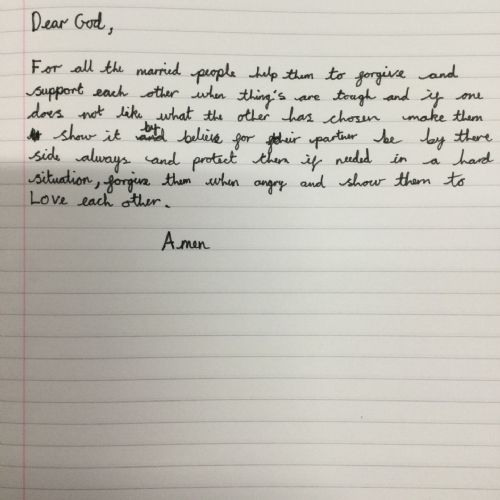 Dear God,
For all the married people help them to forgive and
support each other when thing's are tough and if one
does not like what the other has chosen make them
show it but believe for their partner be by there
side always and protect them if needed in a hard
situation, forgive them when angry and show them to
Love each other.
Amen